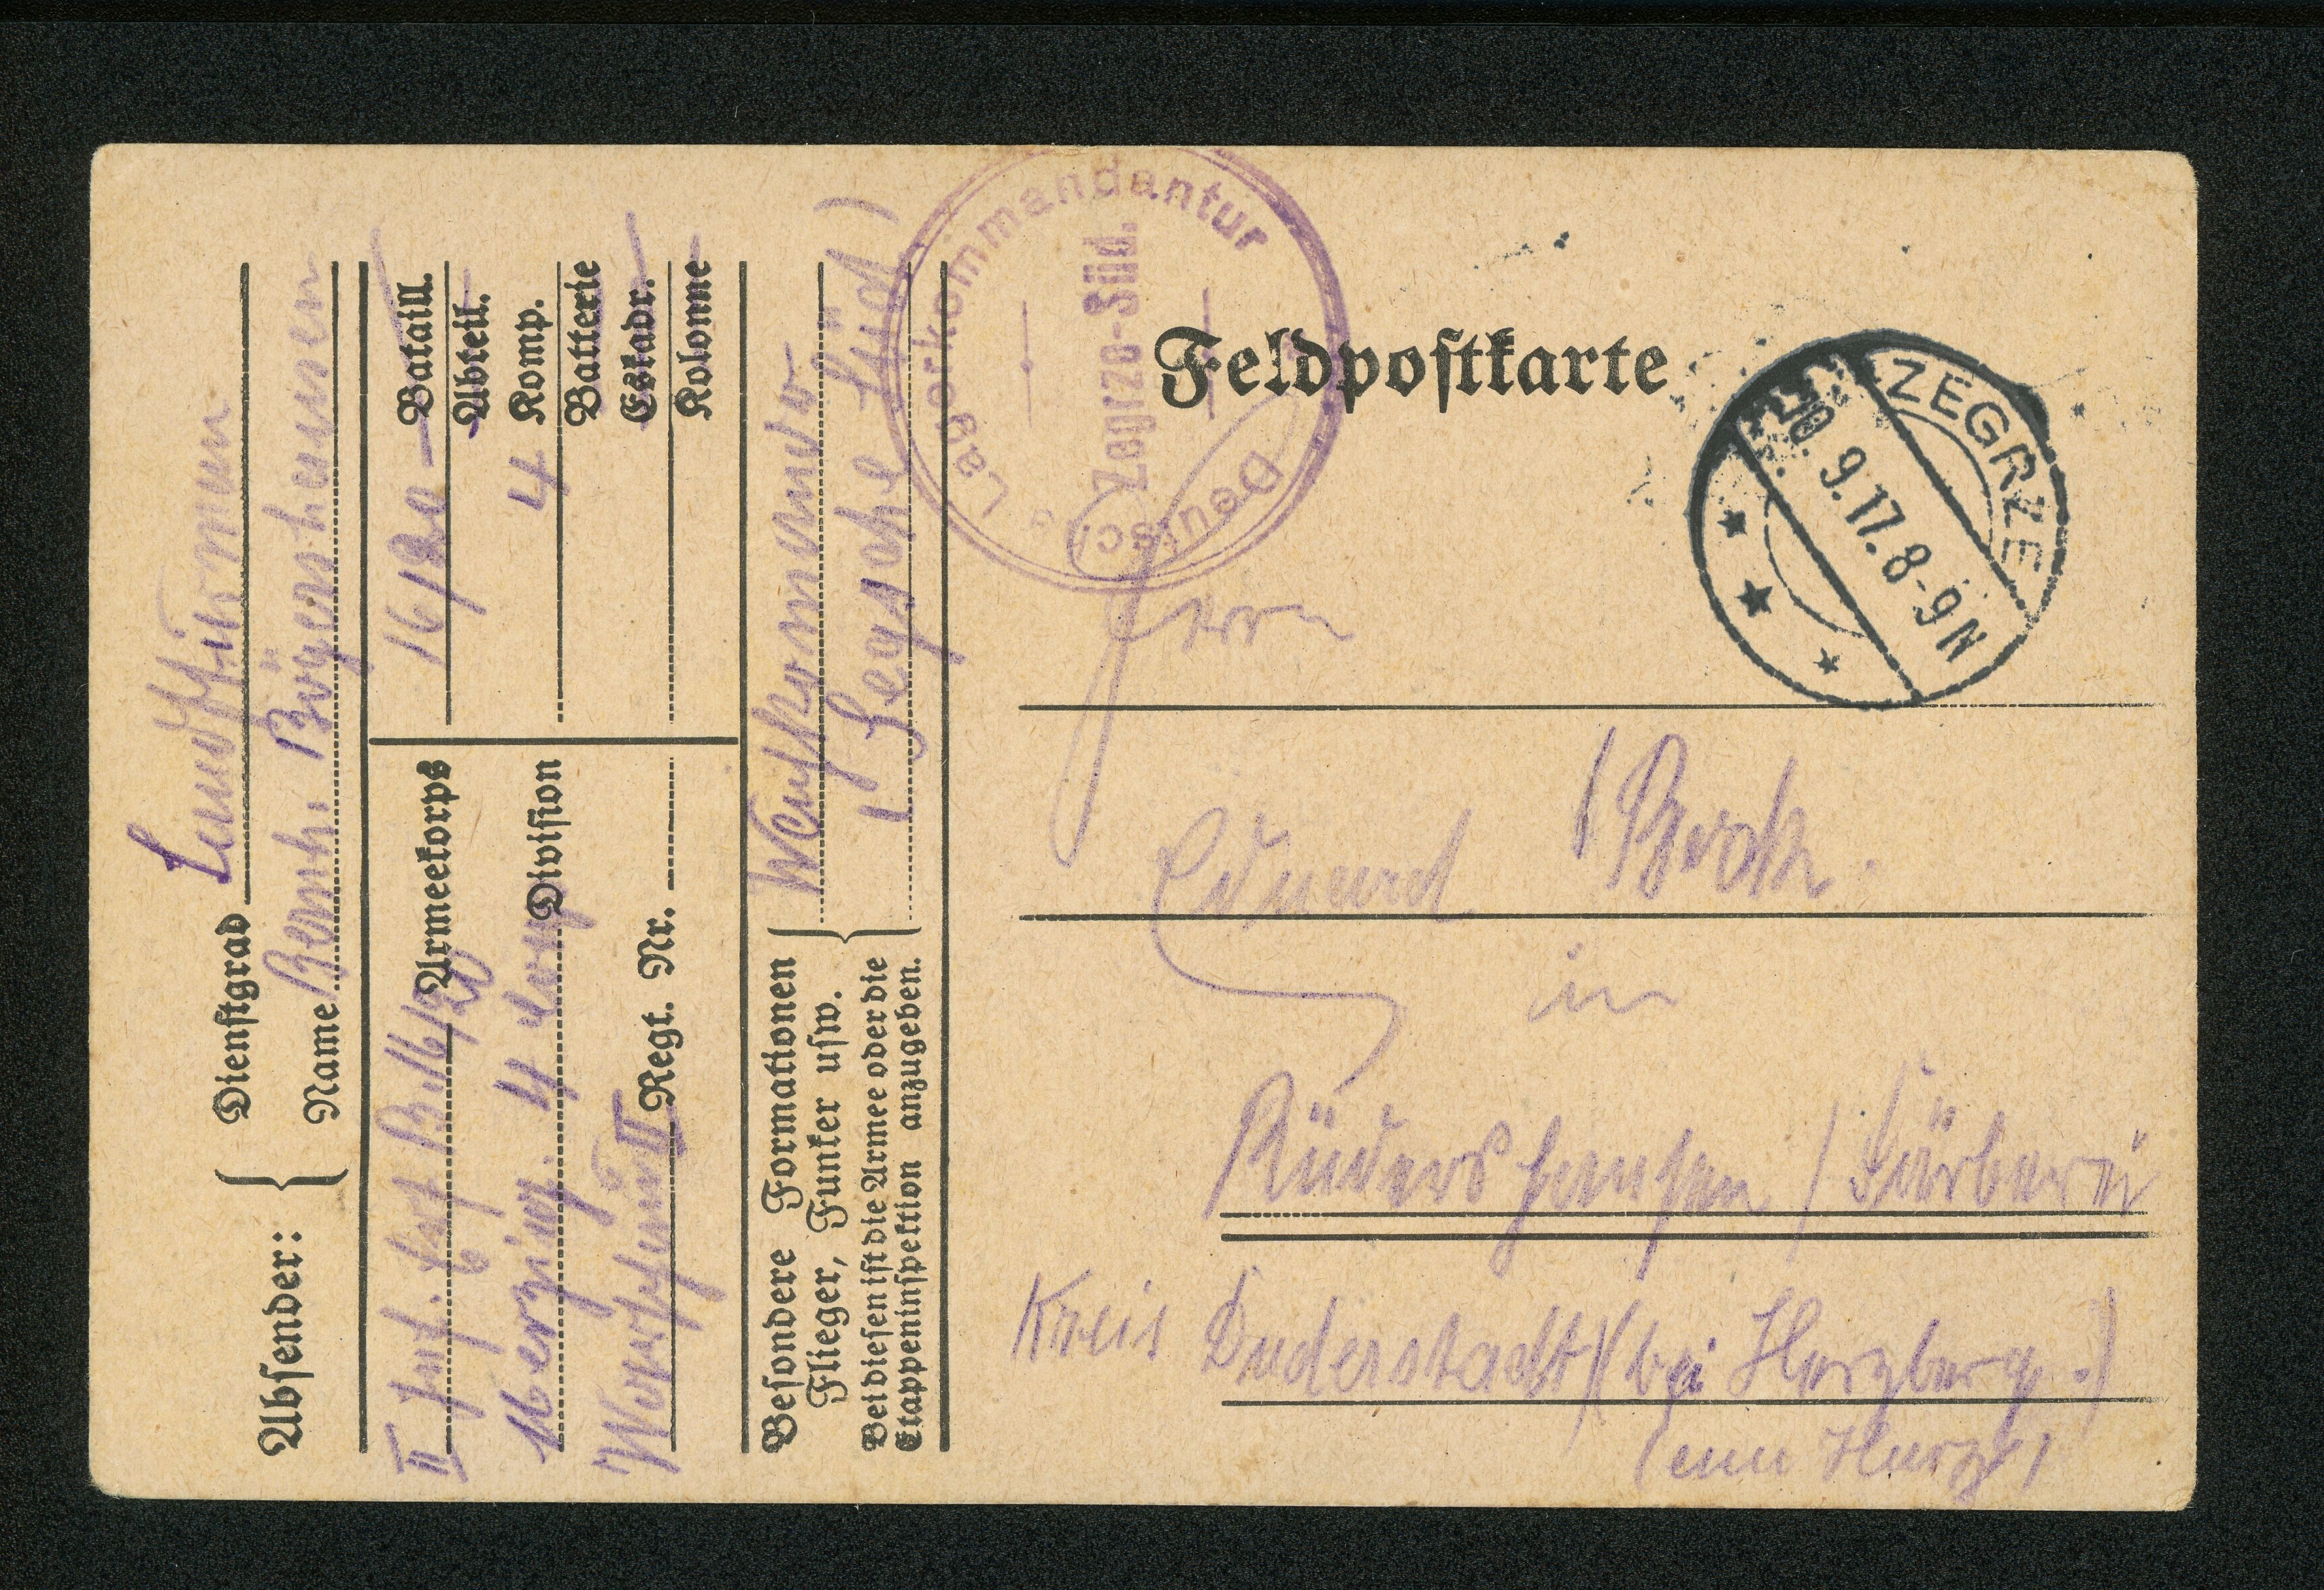 Absender:
Dienstgrad Landsturmmann
Name Bernh.
II Inf.
Armeekorps
16/20 Bataill.
Abteil.
4 Komp.
Division
Batterie
Eskadr.
Warschau II Regt. Nr.
Kolonne
Besondere Formationen
Flieger, Funker usw.
Bei diesen ist die Armee oder die
Etappeninspektion anzugeben.
Wachkommando
Süd)
Deutsche Lagerkommandantur
Zegrze-Süd.
Feldpostkarte
ZEGRZE
9.17.8-9N
Herrn
Eduard
in
Rüdershausen / Färberei
Kreis Duderstadt (bei Herzberg.)
(am Harz)